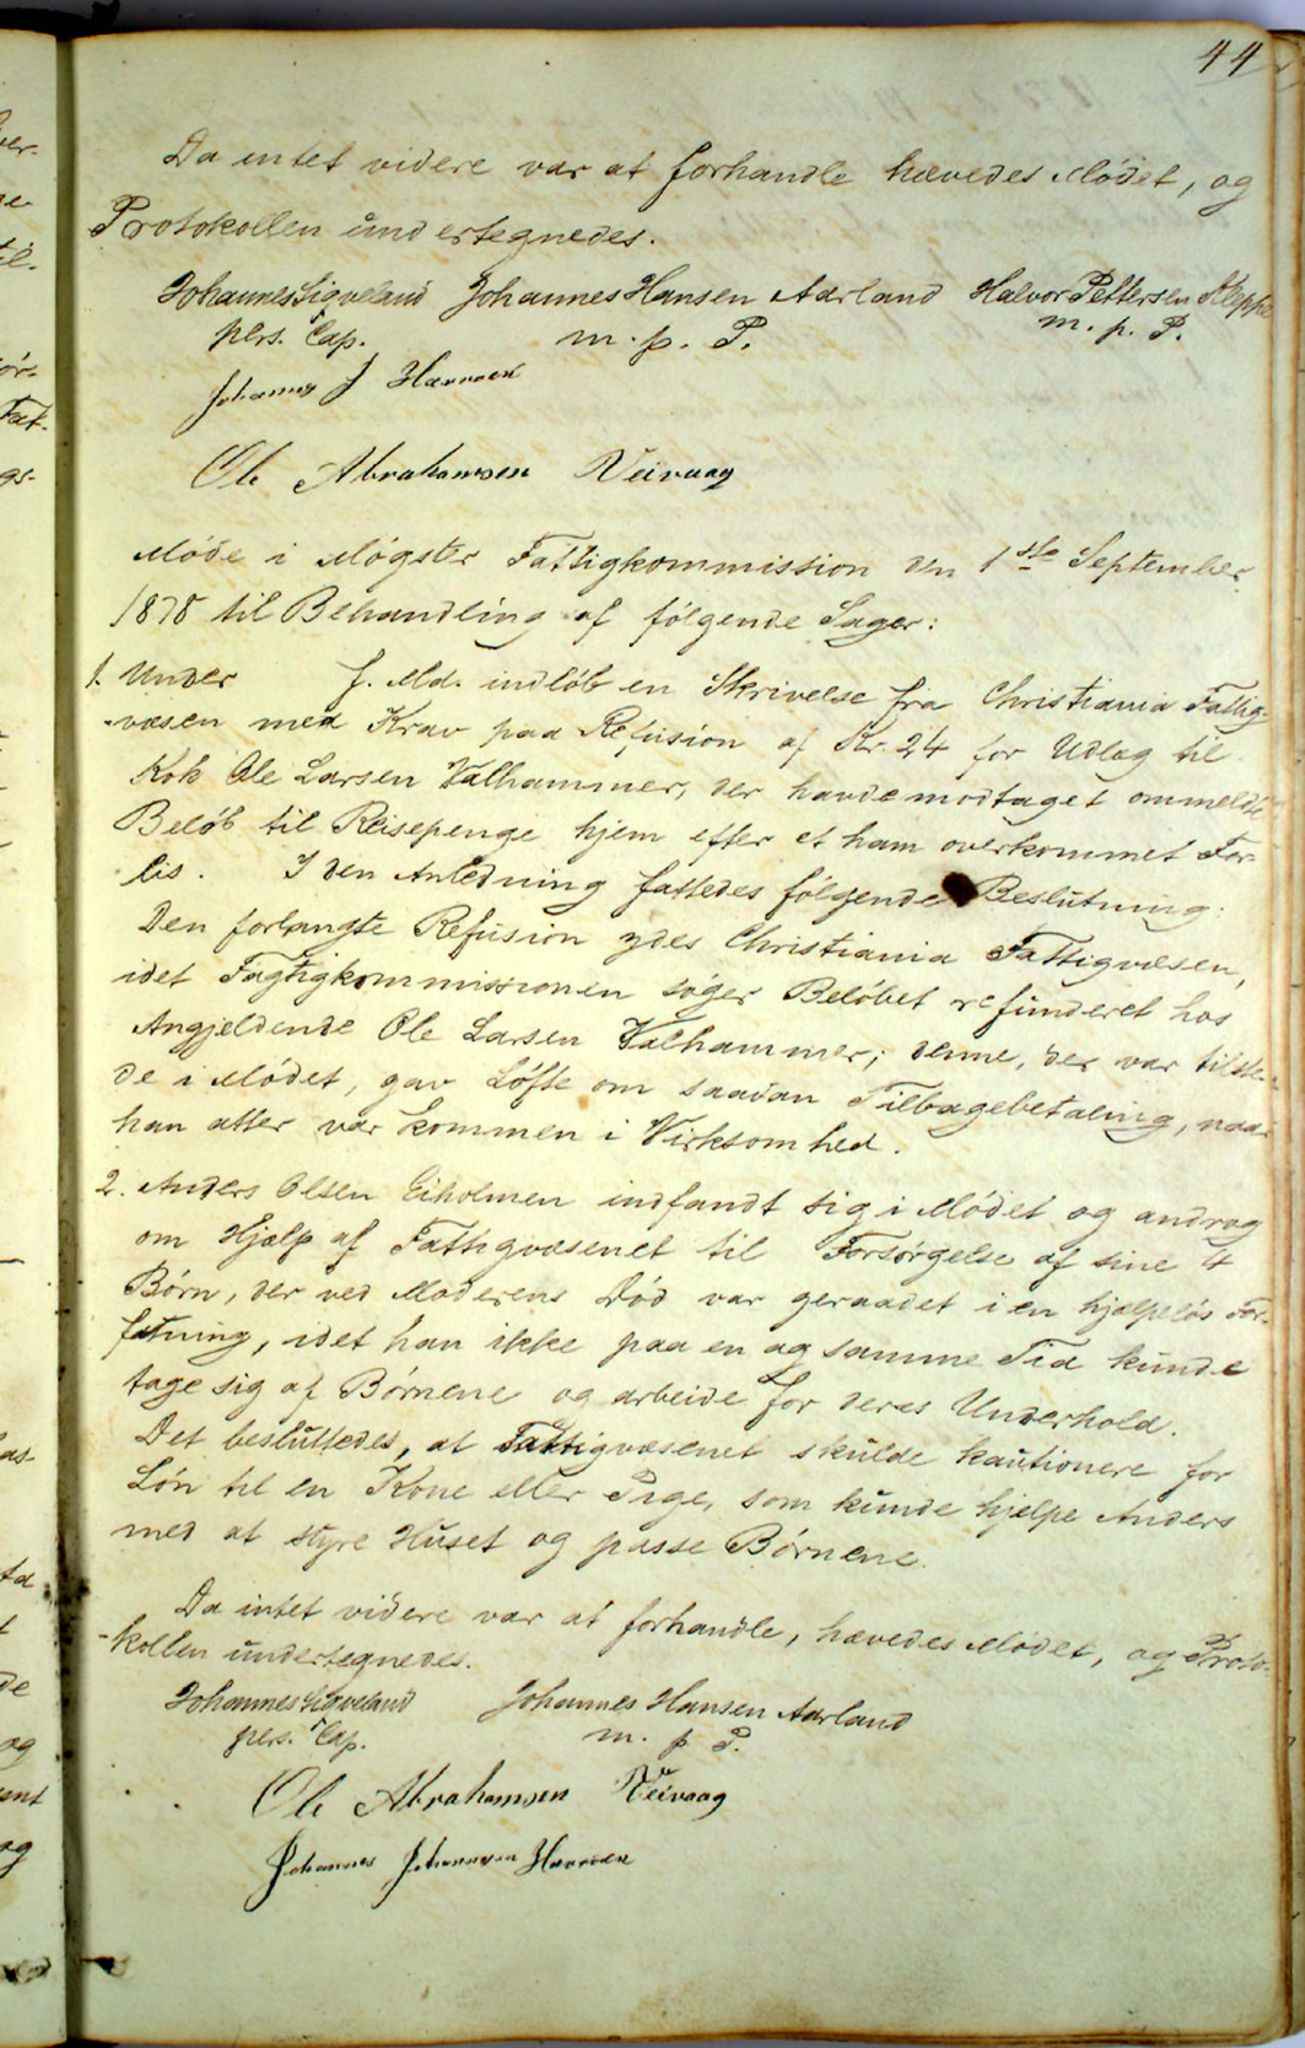 44
Da intet videre var at forhandle hævedes Mødet, og
Protokollen undertegnedes.
Johannes Sigveland Johannes Hansen Aarland Halvor Pettersen Kleppe
pers. Cap. m. p. P. m. p. P.
Johannes J
Ole Abrahamsen Veivaag
Møde i Møgster Fattigkommission den 1ste September
1878 til Behandling af følgende Sager:
1. Under f. Md. indløb en Skrivelse fra Christiania Fattig-
væsen med Krav paa Refusion af Kr. 24 for Udlæg til
Kok Ole Larsen Valhammer, der havde modtaget ommeldte
Beløb til Reisepenge hjem efter et ham overkommet For-
lis. I den Anledning fattedes følgende Beslutning:
Den forlangte Refusion ydes Christiania Fattigvæsen,
idet Fagtigkommissionen søger Beløbet refunderet hos
Angjeldende Ole Larsen Valhammer; denne, der var tilste-
de i Mødet, gav Løfte om saadan Tilbagebetaling, naar
han atter var kommen i Virksomhed.
2. Anders Olsen Eiholmen indfandt sig i Mødet og androg
om Hjælp af Fattigvæsenet til Forsørgelse af sine 4
Børn, der ved Moderens Død var geraadet i en hjælpeløs For-
fatning, idet han ikke paa en og samme Tid kunde
tage sig af Børnene og arbeide for deres Underhold.
Det besluttedes, at Fattigvæsenet skulde kautionere for
Løn til en Kone eller Pige, som kunde hjelpe Anders
med at styre Huset og passe Børnene.
Da intet videre var at forhandle, hævedes Mødet, og Proto-
-kollen undertegnedes.
Johannes Sigveland Johannes Hansen Aarland
pers. Cap. m. p. P.
Ole Abrahamsen Veivaag
Johannes Johannesen